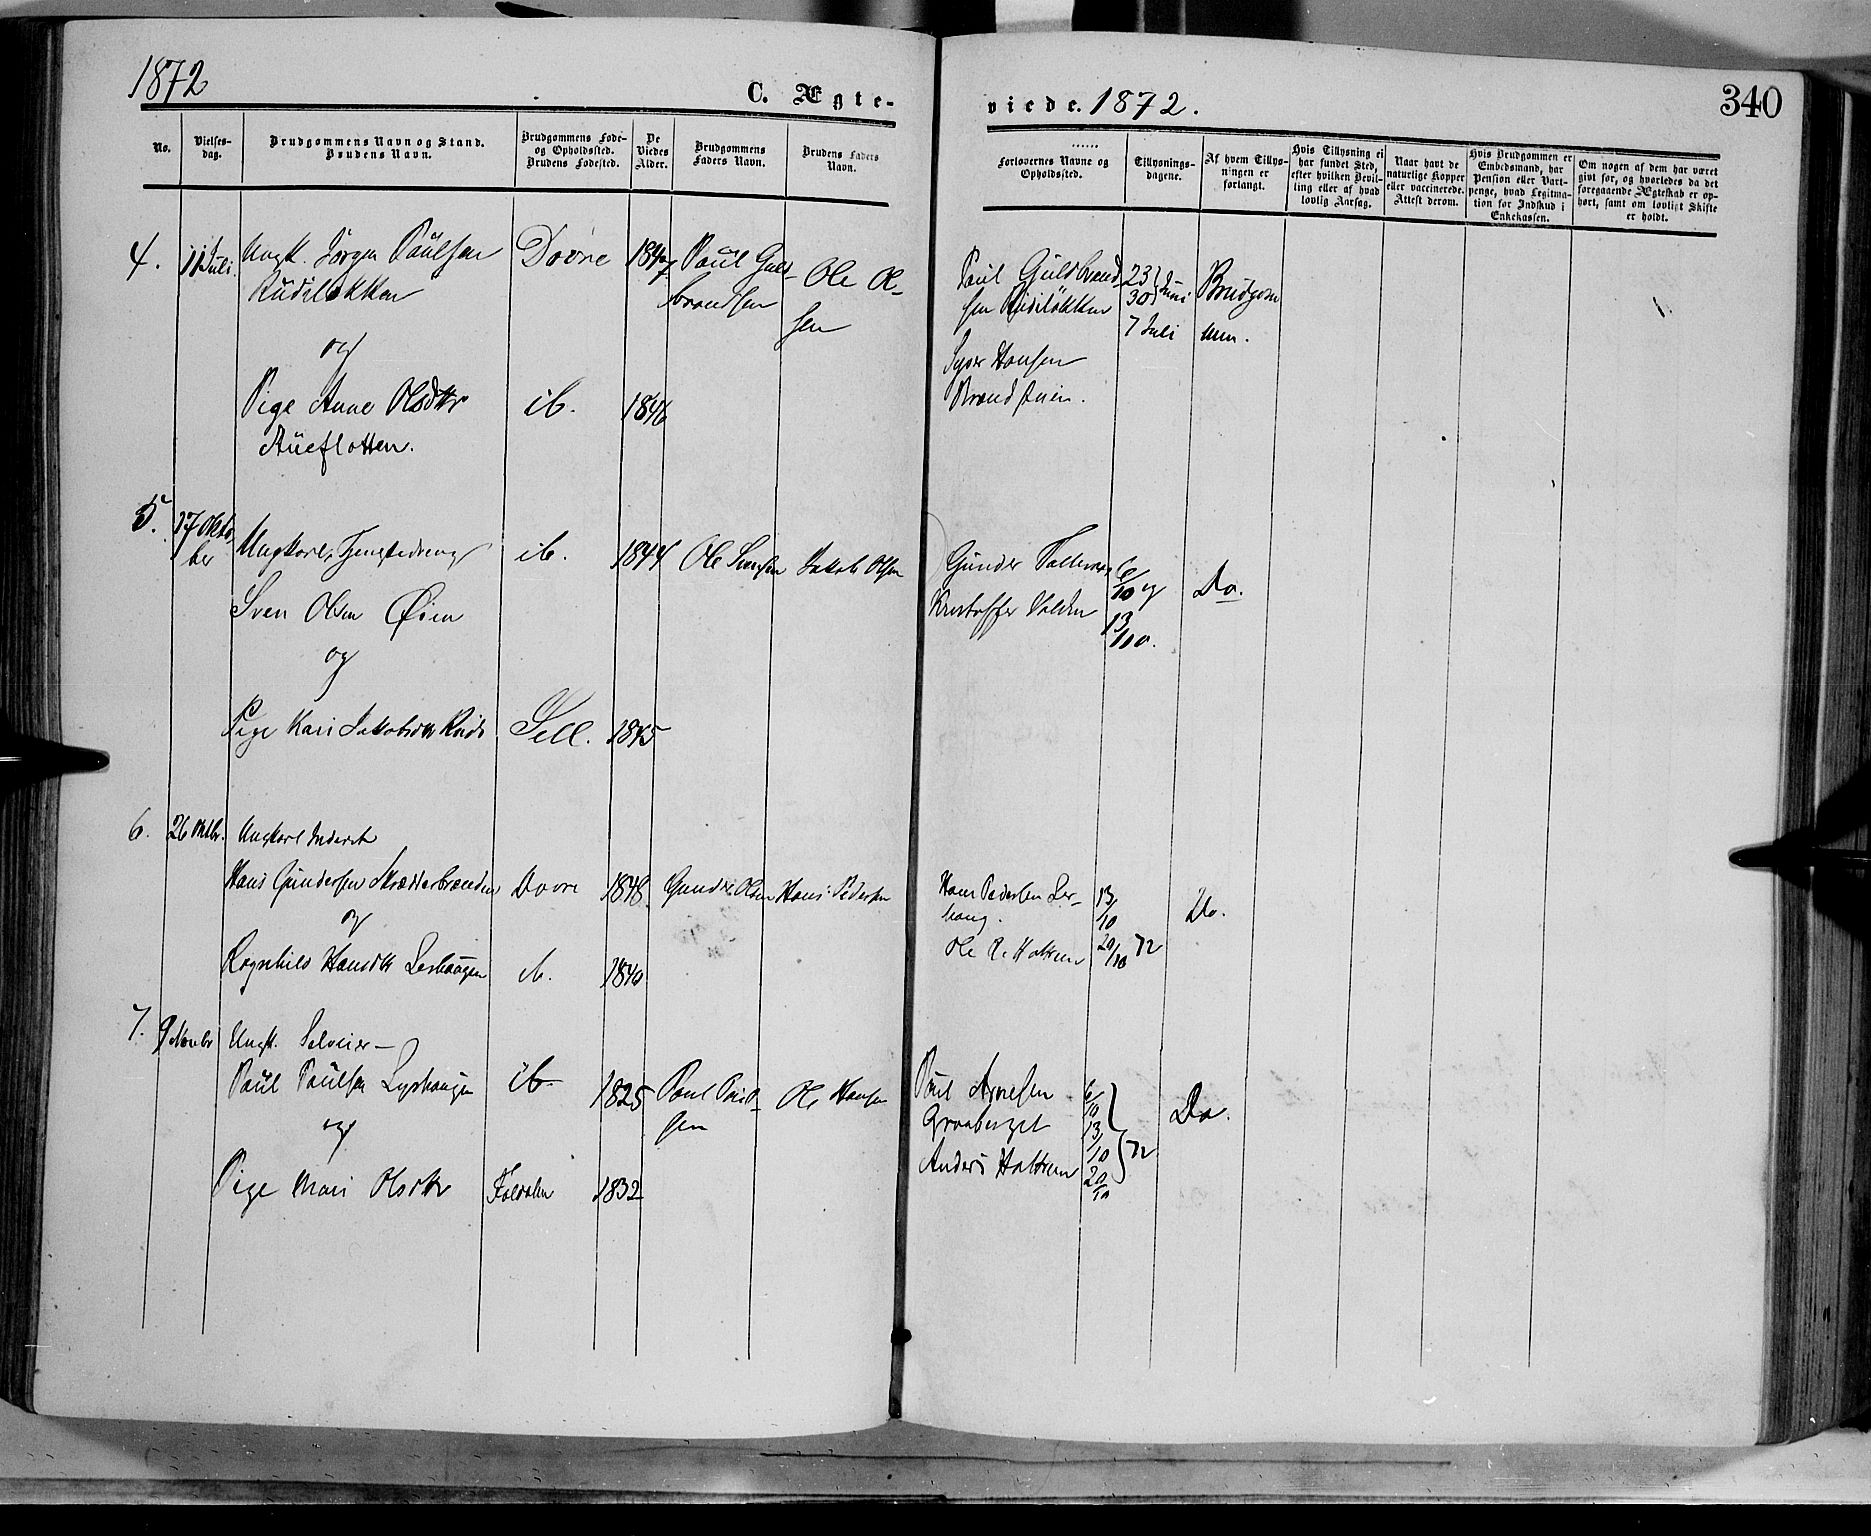 1872
C. Ægte-
viede. 1872.
340
No.
Vielses-
dag.
Brudgommens Navn og Stand.
Brudens Navn.
Brudgommens Føde-
og Opholdssted.
Brudens Fødested.
De
Viedes
Alder.
Brudgommens
Faders Navn.
Brudens Faders
Navn.
Forlovernes Navne og
Opholdssted.
Tillysnings-
dagene.
Af hvem Tillys-
ningen er
forlangt.
Hvis Tillysning ei
har fundet Sted,
efter hvilken Bevil-
ling eller af hvad
lovlig Aarsag.
Naar havt de
naturlige Kopper
eller vaccinerede.
Attest derom.
Hvis Brudgommen er
Embedsmand, har
Pension eller Vart-
penge, hvad Legitima-
tion for Indskud i
Enkekassen.
Om nogen af dem har været
gift før, og hvorledes da det
foregaaende Ægteskab er op-
hørt, samt om lovligt Skifte
er holdt.
4. 11 Juli. Ungk. Jørgen Paulsen Dovre 1847 Paul Guld- Ole Ol-
brandsen sen
og
Pige Anne Olsdtr ib. 1846
Paul Guldbrand- 23 Juni Brudgom
sen 30 men.
7 Juli
Syver Hansen
5. 17 Okto-
ber Ungkarl, ib. 1844 Ole Jakob Olsen
Sven Olsen Øien
og
Pige Kari Jakobsdtr Sell. 1845
Gunder 6/10 og Do.
Kristoffer 13/10.
6. 26 Oktbr. Ungkarl Inderst
Hans Gundersen Dovre 1848 Gunder Olsen Hans Pedersen
og
Ragnhild Hansdtr ib. 1840
Hans Pedersen Les- 13/10 Do.
haug.
20/10 72
7. 9 Novbr Ungk. Selveier
Paul Paulsen ib. 1825 Paul Paul- Ole Hansen
sen
og
Pige Mari Olsdtr Foldalen 1832
Paul Arnesen 6/10
13/10 72 Do.
Anders 20/10